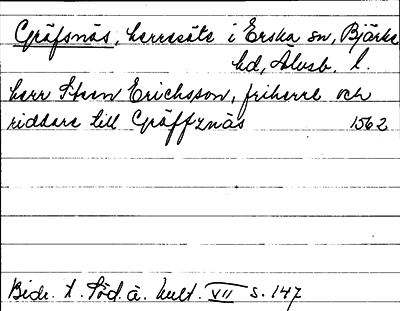 Gräfsnäs, herresäte i Erska sn, Bjärke
hd, Älvsb. l.
herr Sten Ericksson, friherre och
riddare till Gräffznäs 1562
Bidr. t. Söd. ä. kult. VII s. 147